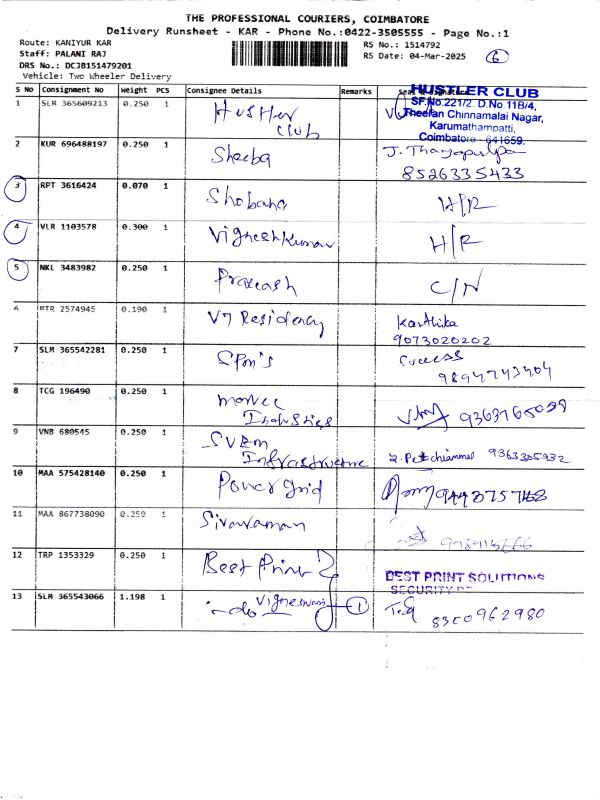 THE PROFESSIONAL COURIERS, COIMBATORE
Delivery Runsheet - KAR - Phone No.:0422-3505555 - Page No.:1
Route: KANIYUR KAR
Staff: PALANI RAJ
DRS No.: DCJB151479201
Vehicle: Two Wheeler Delivery
RS No.: 1514792
RS Date: 04-Mar-2025 6
S No Consignment No Weight PCS Consignee Details Remarks Seal & Signature
HUSTLER CLUB
SF.No.221/2. D.No.11B/4,
Theeran Chinnamalai Nagar,
Karumathampatti,
Coimbatore - 641659.
1 SLM 365609213 0.250 1 Hustler Club
2 KUR 696488197 0.250 1 Sheeba
8526335433
3 RPT 3616424 0.070 1 Shobana H/R
4 VLR 1103578 0.300 1 Vignesh Kumar H/R
5 NKL 3483982 0.250 1 Prakash C/N
6 MTR 2574945 0.190 1 V7 Residency Karthika
9073020202
7 SLM 365542281 0.250 1 SPM's Success
8 TCG 196490 0.250 1 Industries
9 VNB 680545 0.250 1 SVEM Infrastructure 9363305932
10 MAA 575428140 0.250 1 Power grid
11 MAA 867738090 0.250 1 Sivaraman
12 TRP 1353329 0.250 1 Best Print
BEST PRINT SOLUTIONS
SECURITY
13 SLM 365543066 1.198 1 -do- Vigneswari 1
8300962980